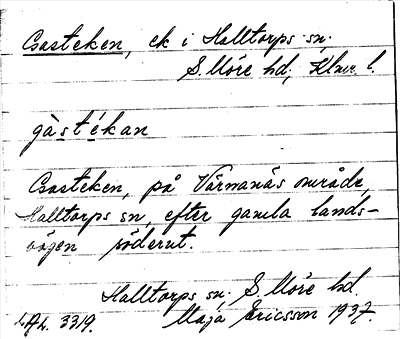 Gästeken, ek i Halltorps sn,
S. Möre hd, Klmr l.
gàstékan
Gästeken, på Värnanäs område,
Halltorps sn, efter gamla lands-
vägen söderut.
Halltorps sn, S. Möre hd.
Maja Ericsson 1937.
3319.